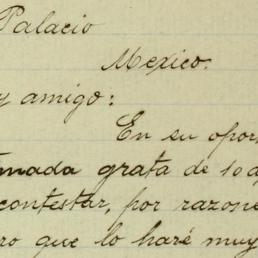 Palacio
Mexico.
y amigo:
En su opor
mada grata de 10 d
contestar, por razone
ro que lo haré muy